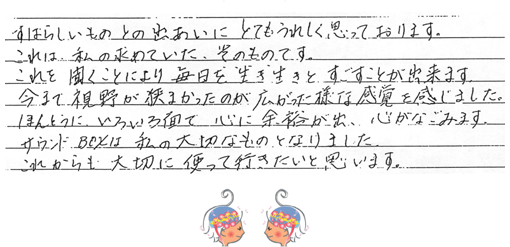 すばらしいものとの出あいにとてもうれしく思っております。
これは、私の求めていた、そのものです。
これを聞くことにより毎日を生き生きとすごすことが出来ます
今まで視野が狭まかったのが広がった様な感覚を感じました。
ほんとうに、いろいろ面で心に余裕が出、心がなごみます。
サウンドBOXは私の大切なものとなりました
これからも大切に使って行きたいと思います。